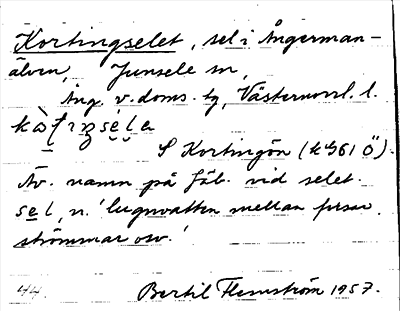 Kortingselet, sel i Ångerman-
älven, Junsele sn,
Ång. v. doms. tg, Västernorrl. l.
S Kortingön (
Äv. namn på fäb. vid selet.
sel, n. 'lugnvatten mellan forsar
strömmar osv.'
44. Bertil Flemström 1957.